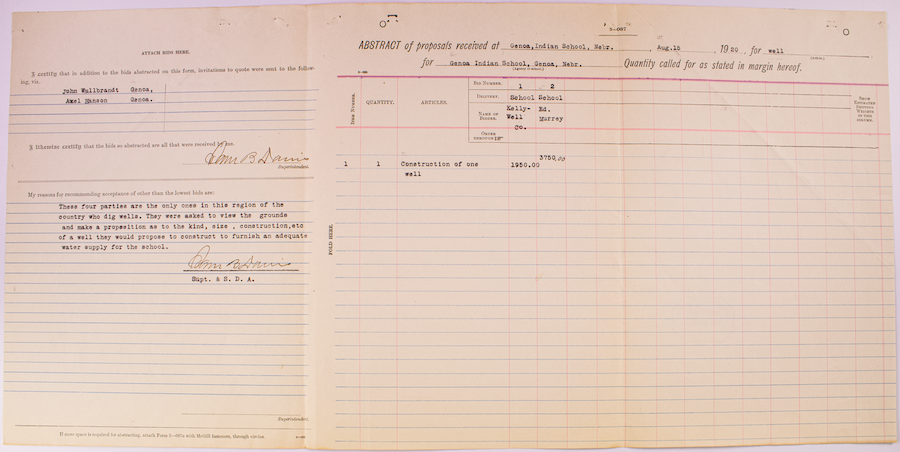 ATTACH BIDS HERE.
I certify that in addition to the bids abstracted on this form, invitations to quote were sent to the follow-
ing, viz.
John Wullbrandt Genoa,
Axel Hanson Genoa.
I likewise certify that the bids so abstracted are all that were received by me.
Sam B Davis
Superintendent.
My reasons for recommending acceptance of other than the lowest bids are:
These four parties are the only ones in this region of the
country who dig wells. They were asked to view the grounds
and make a proposition as to the kind, size , construction,etc
of a well they would propose to construct to furnish an adequate
water supply for the school.
Sam B Davis
Supt. & S. D. A.
Superintendent.
If more space is required for abstracting, attach Form 5—
with McGill fasteners, through circles.
5—357
ABSTRACT of proposals received at Genoa,Indian School, Nebr. , Aug.15 , 1920 , for well
for Genoa Indian School, Genoa, Nebr. Quantity called for as stated in margin hereof.
FOLD HERE.
ITEM NUMBER.
QUANTITY.
ARTICLES.
BID NUMBER. 1 2
DELIVERY. School School
NAME OF BIDDER. Kelly- Ed.
Well Murrey
Co.
ORDER THROUGH
SHOW ESTIMATED SHIPPING WEIGHTS IN THIS COLUMN.
3750.00
1 1 Construction of one 1950.00
well